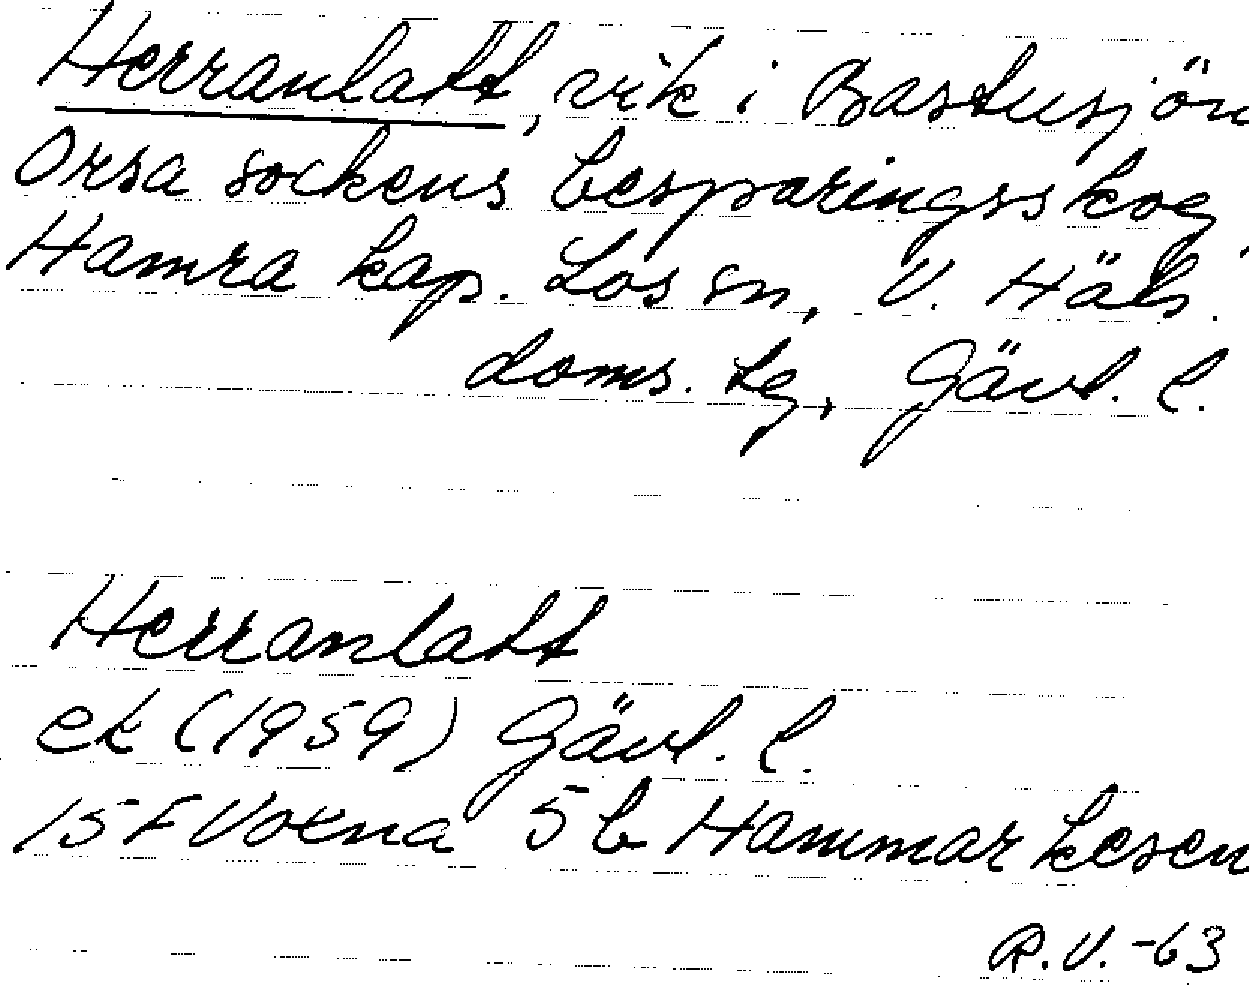 Herranlatt, vik i Bastusjön
Orsa sockens besparingsskog,
Hamra kap. Los sn, V. Häls.
doms. tg, Gävl. l.
Herranlatt
ek (1959) Gävl. l.
15 F Voxna 5 b Hammarkesen
R.V. -63